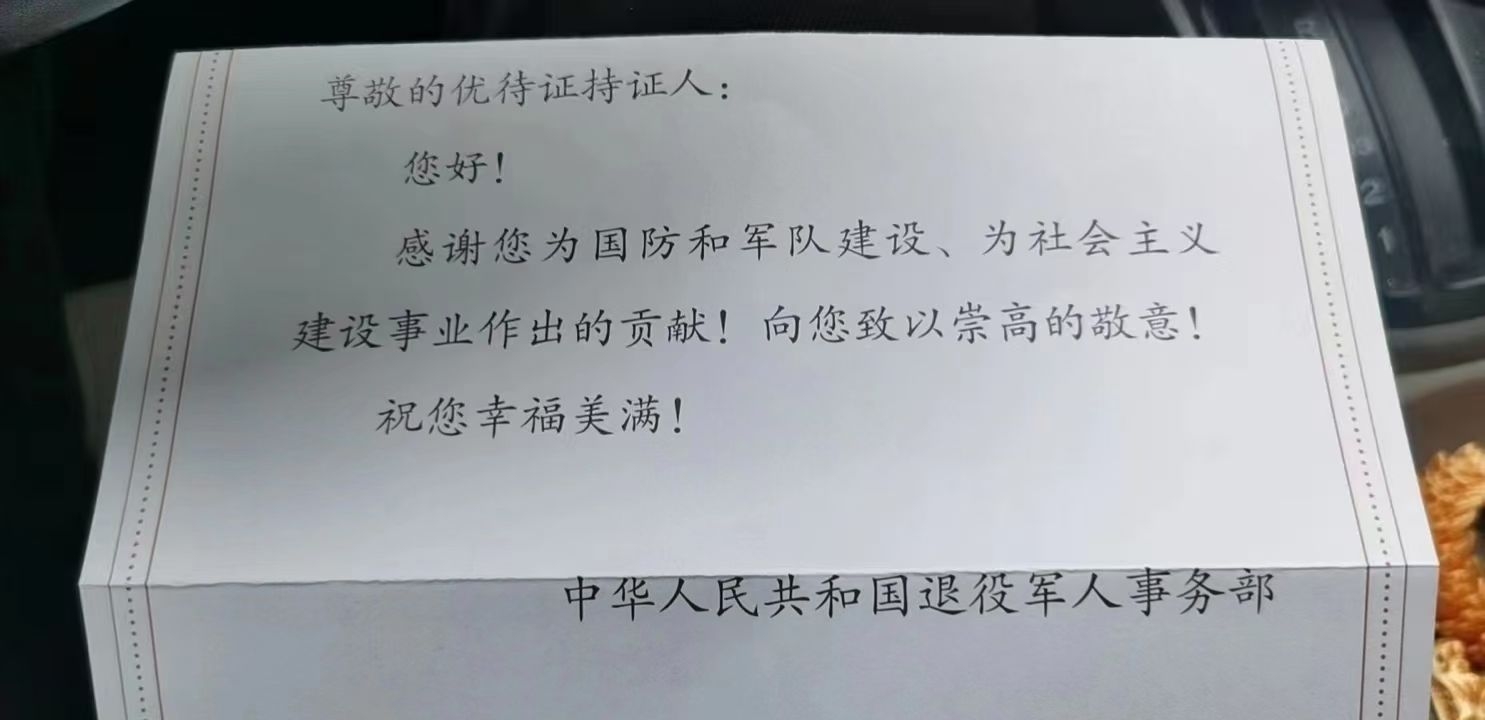 尊敬的优待证持证人：
您好！
感谢您为国防和军队建设、为社会主义
建设事业作出的贡献！向您致以崇高的敬意！
祝您幸福美满！
中华人民共和国退役军人事务部
2
1